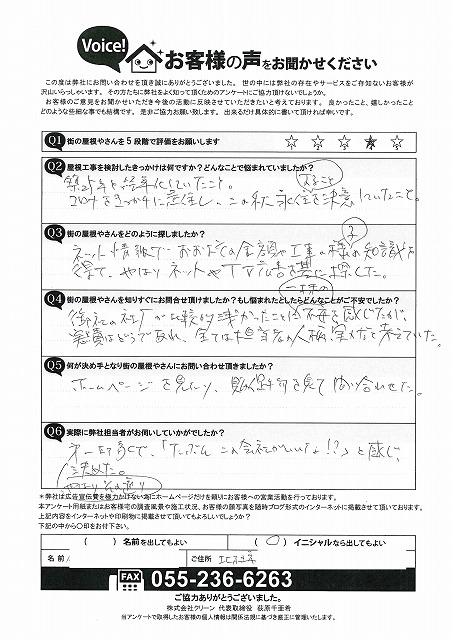 Voice!
お客様の声をお聞かせください
この度は弊社にお問い合わせを頂き誠にありがとうございました。世の中には弊社の存在やサービスをご存知ないお客様が
沢山いらっしゃいます。その方たちに弊社をよく知って頂くためのアンケートにご協力頂けないでしょうか。
お客様のご意見をお聞かせいただき今後の活動に反映させていただきたいと考えております。良かったこと、嬉しかったこと
どのような些細な事でも結構です。是非ご協力お願い致します。出来るだけ具体的に書いて頂ければ幸いです。
Q1 街の屋根やさんを5段階で評価をお願いします
☆ ☆ ☆ ★ ☆
Q2 屋根工事を検討したきっかけは何ですか?どんなことで悩まれていましたか?
築25年と経年化していたこと。
コロナをきっかけに在住し、この私永住を決意していたこと。
Q3 街の屋根やさんをどのように探しましたか?
ネット情報でおおよその金額や工事の様の知識を
得て、やはりネットやTV広告を基に探した。
Q4 街の屋根やさんを知りすぐにお問合せ頂けましたか?もし悩まれたとしたらどんなことがご不安でしたか?
御社の社歴が比較的浅かったことに不安を感じたが、
実費はどうであれ、全ては担当者の人柄、実力だと考えていた。
Q5 何が決め手となり街の屋根やさんにお問い合わせ頂けましたか?
ホームページを見たり、を見て問い合わせた。
Q6 実際に弊社担当者がお伺いしていかがでしたか?
第一印象で、「たぶんこの会社がいいよ!?」と感じ、
決めた。
やはりその通り
*弊社は広告宣伝費を極力かけない為にホームページだけを頼りにお客様への営業活動を行っております。
本アンケート用紙またはお客様宅の調査風景や施工状況、お客様の顔写真を随時ブログ形式のインターネットに掲載させて頂いております。
上記内容をインターネットや印刷物に掲載させて頂いてもよろしいでしょうか?
下記の中から〇印をお付下さい。
( )名前を出してもよい (〇)イニシャルなら出してもよい
名前 ご住所
FAX 055-236-6263
ご協力ありがとうございました。
株式会社クリーン 代表取締役 荻原千亜希
当アンケートで取得したお客様の個人情報は関係法規に基づき厳正に管理いたします。